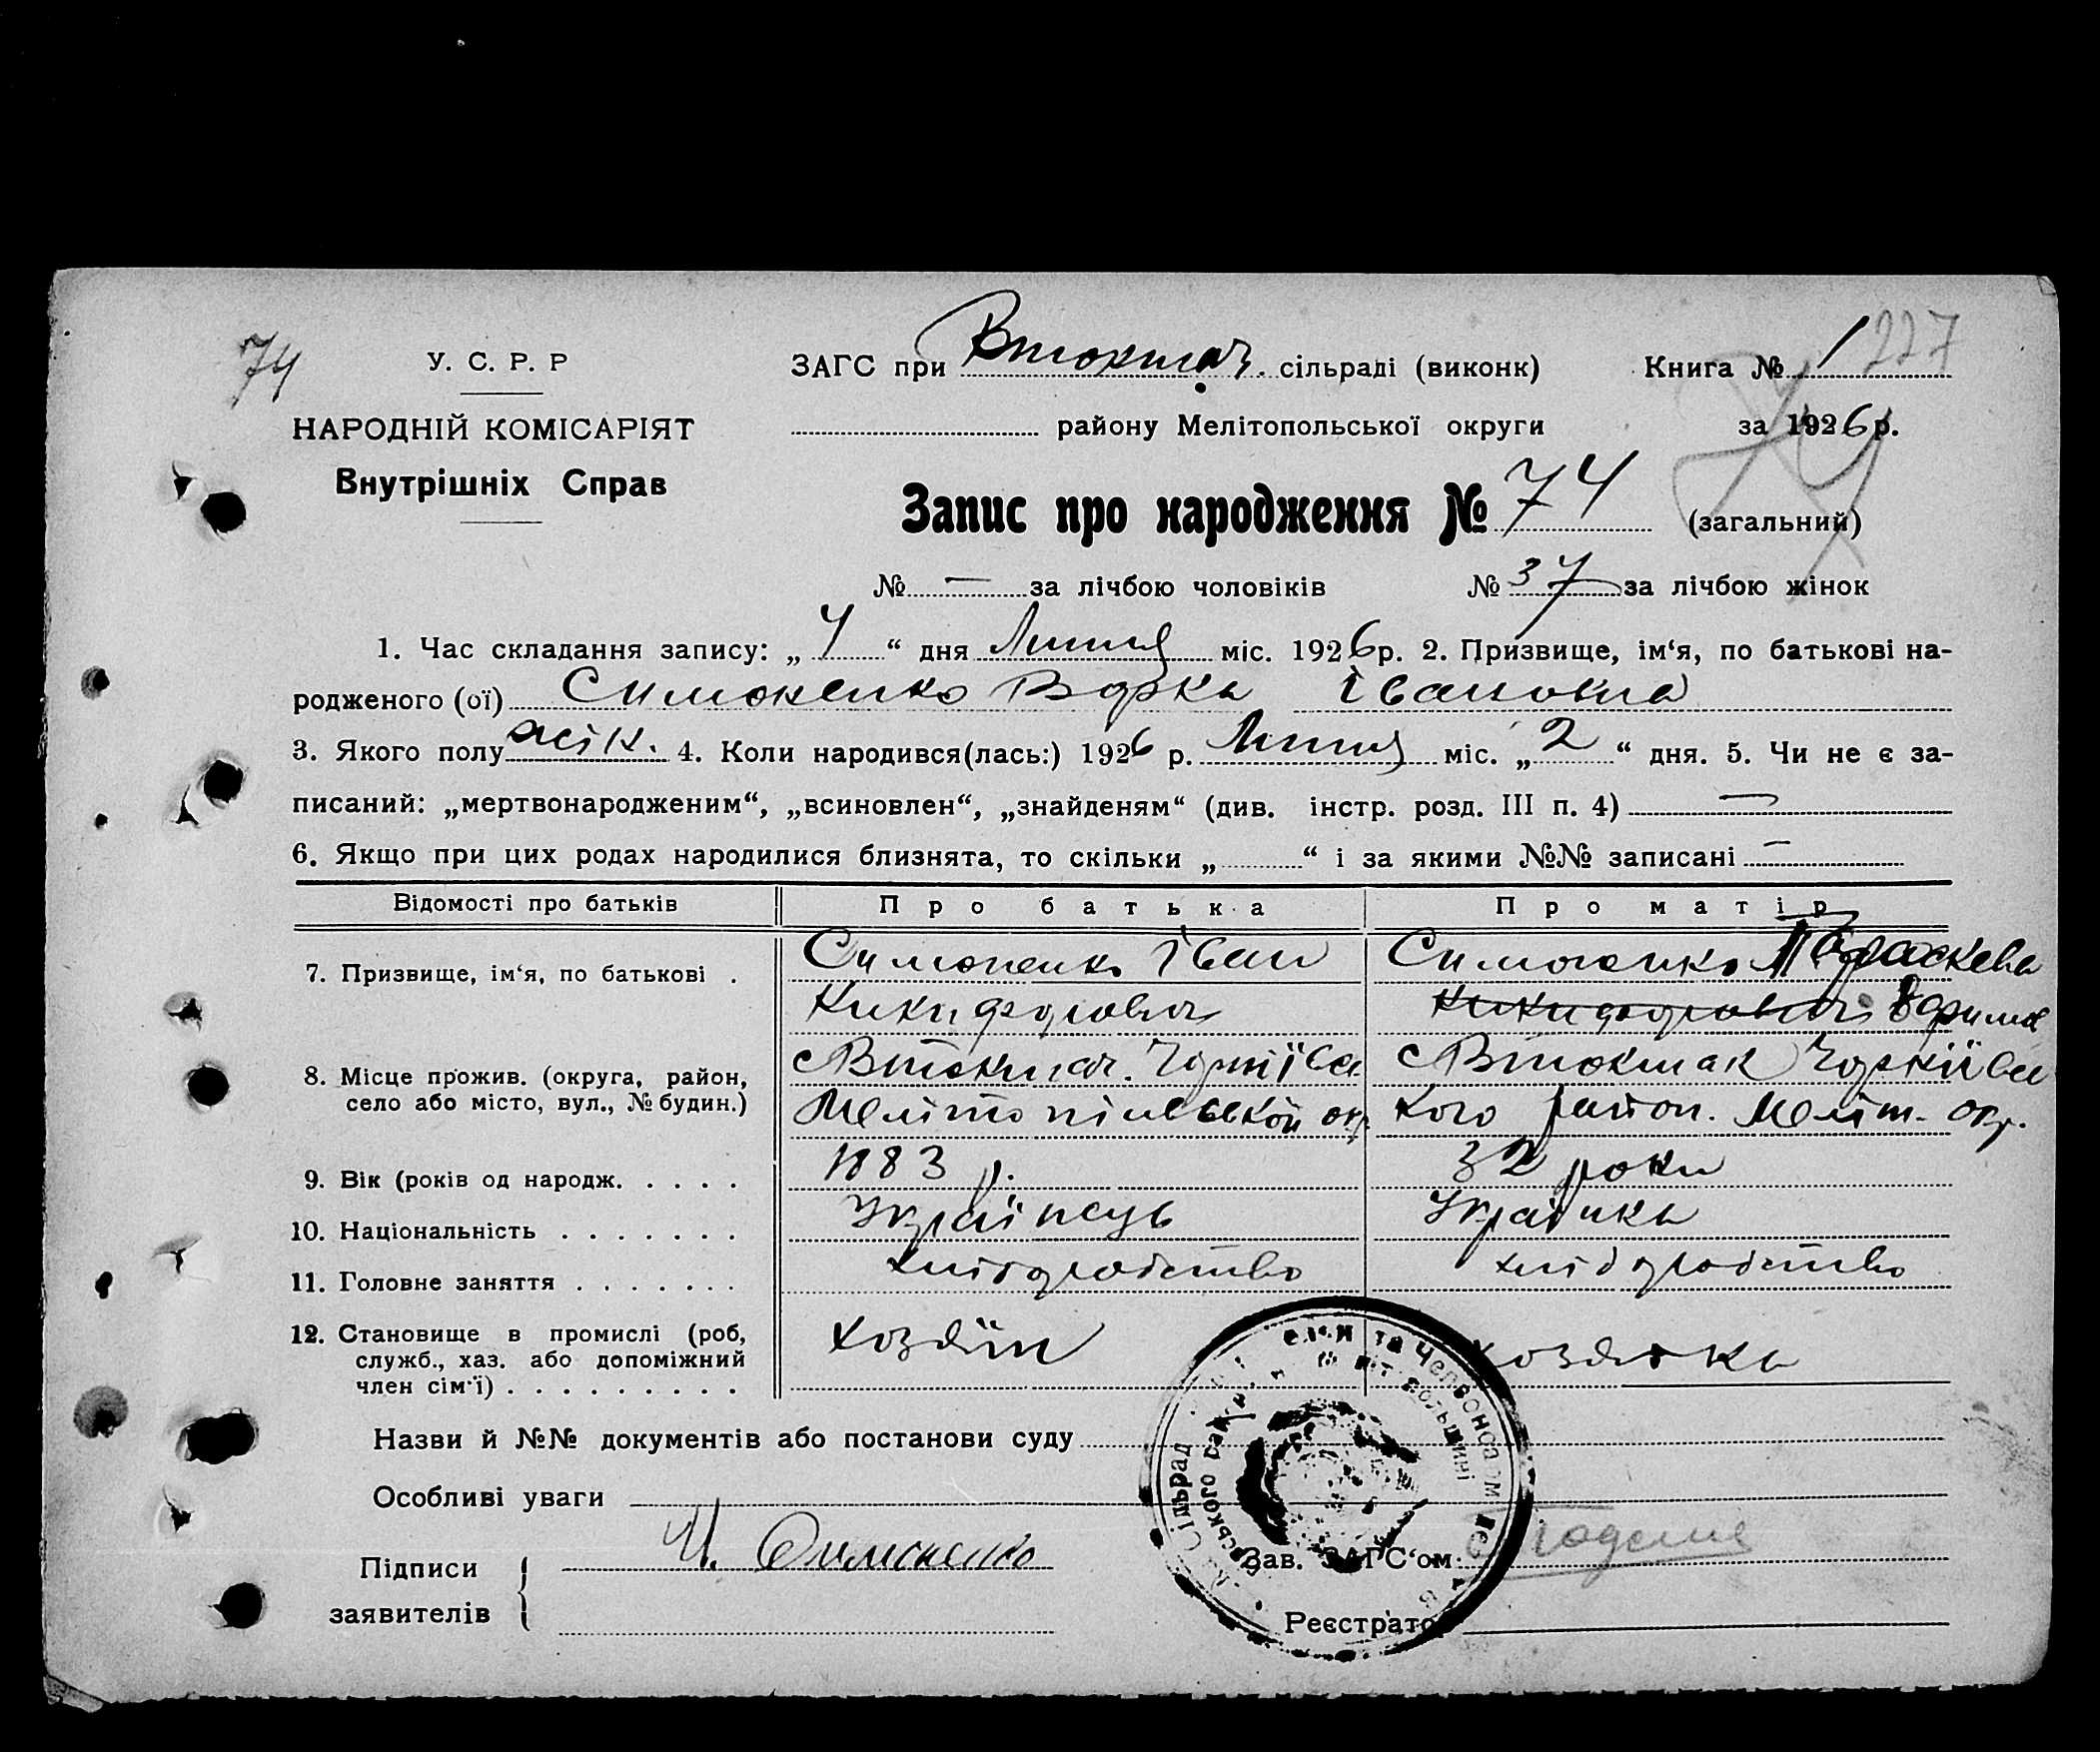 74
У. С. Р. Р
НАРОДНІЙ КОМІСАРІЯТ
Внутрішніх Справ
ЗАГС при Втокмач. сільраді (виконк)
Книга № 1 227
району Мелітопольської округи
за 1926 р.
74
Запис про народження № 74 (загальний)
№ — за лічбою чоловіків № 37 за лічбою жінок
1. Час складання запису: „ 4 “ дня Липня міс. 1926 р. 2. Призвище, ім‘я, по батькові на-
родженого (ої) Симоненко Варка Івановна
3. Якого полу жін. 4. Коли народився(лась:) 1926 р. Липня міс. „ 2 “ дня. 5. Чи не є за-
писаний: „мертвонародженим“, „всиновлен“, „знайденям“ (див. інстр. розд. III п. 4) —
6. Якщо при цих родах народилися близнята, то скільки „ “ і за якими №№ записані —
Відомості про батьків Про батька Про матір
7. Призвище, ім‘я, по батькові . Симоненко Іван Симоненко Параскева
Никифорович Никифорович
8. Місце прожив. (округа, район, Втокмач.
село або місто, вул., № будин.) Втокмак
Мелітопільської окр. кого район. Меліт. окр.
9. Вік (років од народж. . . . . 1883 р. 32 роки
10. Національність . . . . . . . Українець Українка
11. Головне заняття . . . . . . . хліборобство хліборобство
12. Становище в промислі (роб, хозяїн хозяйка
служб., хаз. або допоміжний
член сім‘ї) . . . . . . . . .
Назви й №№ документів або постанови суду
Особливі уваги
Підписи
заявителів
И. Симоненко
Зав. ЗАГС‘ом
Реєстратор